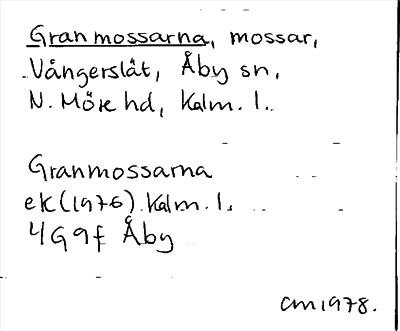 Granmossarna, mossar,
Vångerslät, Åby sn,
N. Möre hd, Kalm. l.
Granmossarna
ek (1976) Kalm. l.
4G9f Åby
CM 1978.